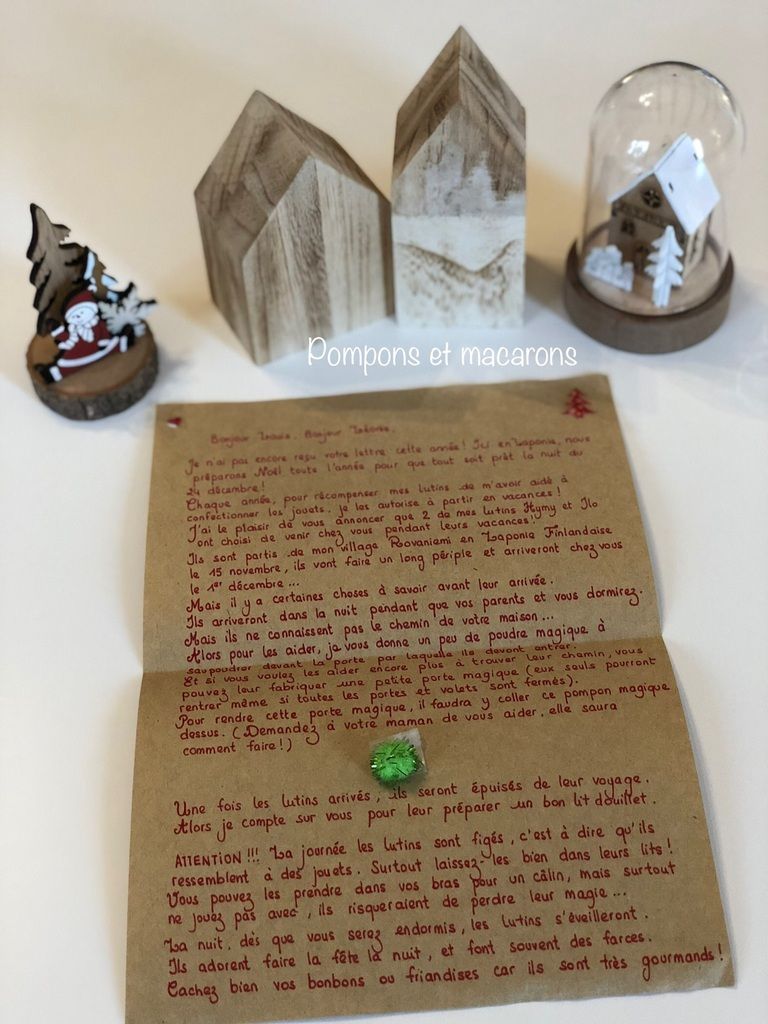 Pompons et macarons
Bonjour Louis, Bonjour
Je n'ai pas encore reçu votre lettre cette année! Ici en Laponie, nous
préparons Noël toute l'année pour que tout soit prêt la nuit du
24 décembre!
Chaque année, pour récompenser mes lutins de m'avoir aidé à
confectionner les jouets, je les autorise à partir en vacances!
J'ai le plaisir de vous annoncer que 2 de mes lutins Hymy et Ilo
ont choisi de venir chez vous pendant leurs vacances!
Ils sont partis de mon village Rovaniemi en Laponie Finlandaise
le 15 novembre, ils vont faire un long périple et arriveront chez vous
le 1er décembre ...
Mais il y a certaines choses à savoir avant leur arrivée.
Ils arriveront dans la nuit pendant que vos parents et vous dormirez.
Mais ils ne connaissent pas le chemin de votre maison ...
Alors pour les aider, je vous donne un peu de poudre magique à
saupoudrer devant la porte par laquelle ils devont entrer.
Et si vous voulez les aider encore plus à trouver leur chemin, vous
pouvez leur fabriquer une petite porte magique (eux seuls pourront
rentrer même si toutes les portes et volets sont fermés).
Pour rendre cette porte magique, il faudra y coller ce pompon magique
dessus. (Demandez à votre maman de vous aider, elle saura
comment faire!)
Une fois les lutins arrivés, ils seront épuisés de leur voyage.
Alors je compte sur vous pour leur préparer un bon lit douillet.
ATTENTION !!! La journée les lutins sont figés, c'est à dire qu'ils
ressemblent à des jouets. Surtout laissez-les bien dans leurs lits!
Vous pouvez les prendre dans vos bras pour un câlin, mais surtout
ne jouez pas avec, ils risqueraient de perdre leur magie ...
La nuit, dès que vous serez endormis, les lutins s'éveilleront.
Ils adorent faire la fête la nuit, et font souvent des farces.
Cachez bien vos bonbons ou friandises car ils sont très gourmands!